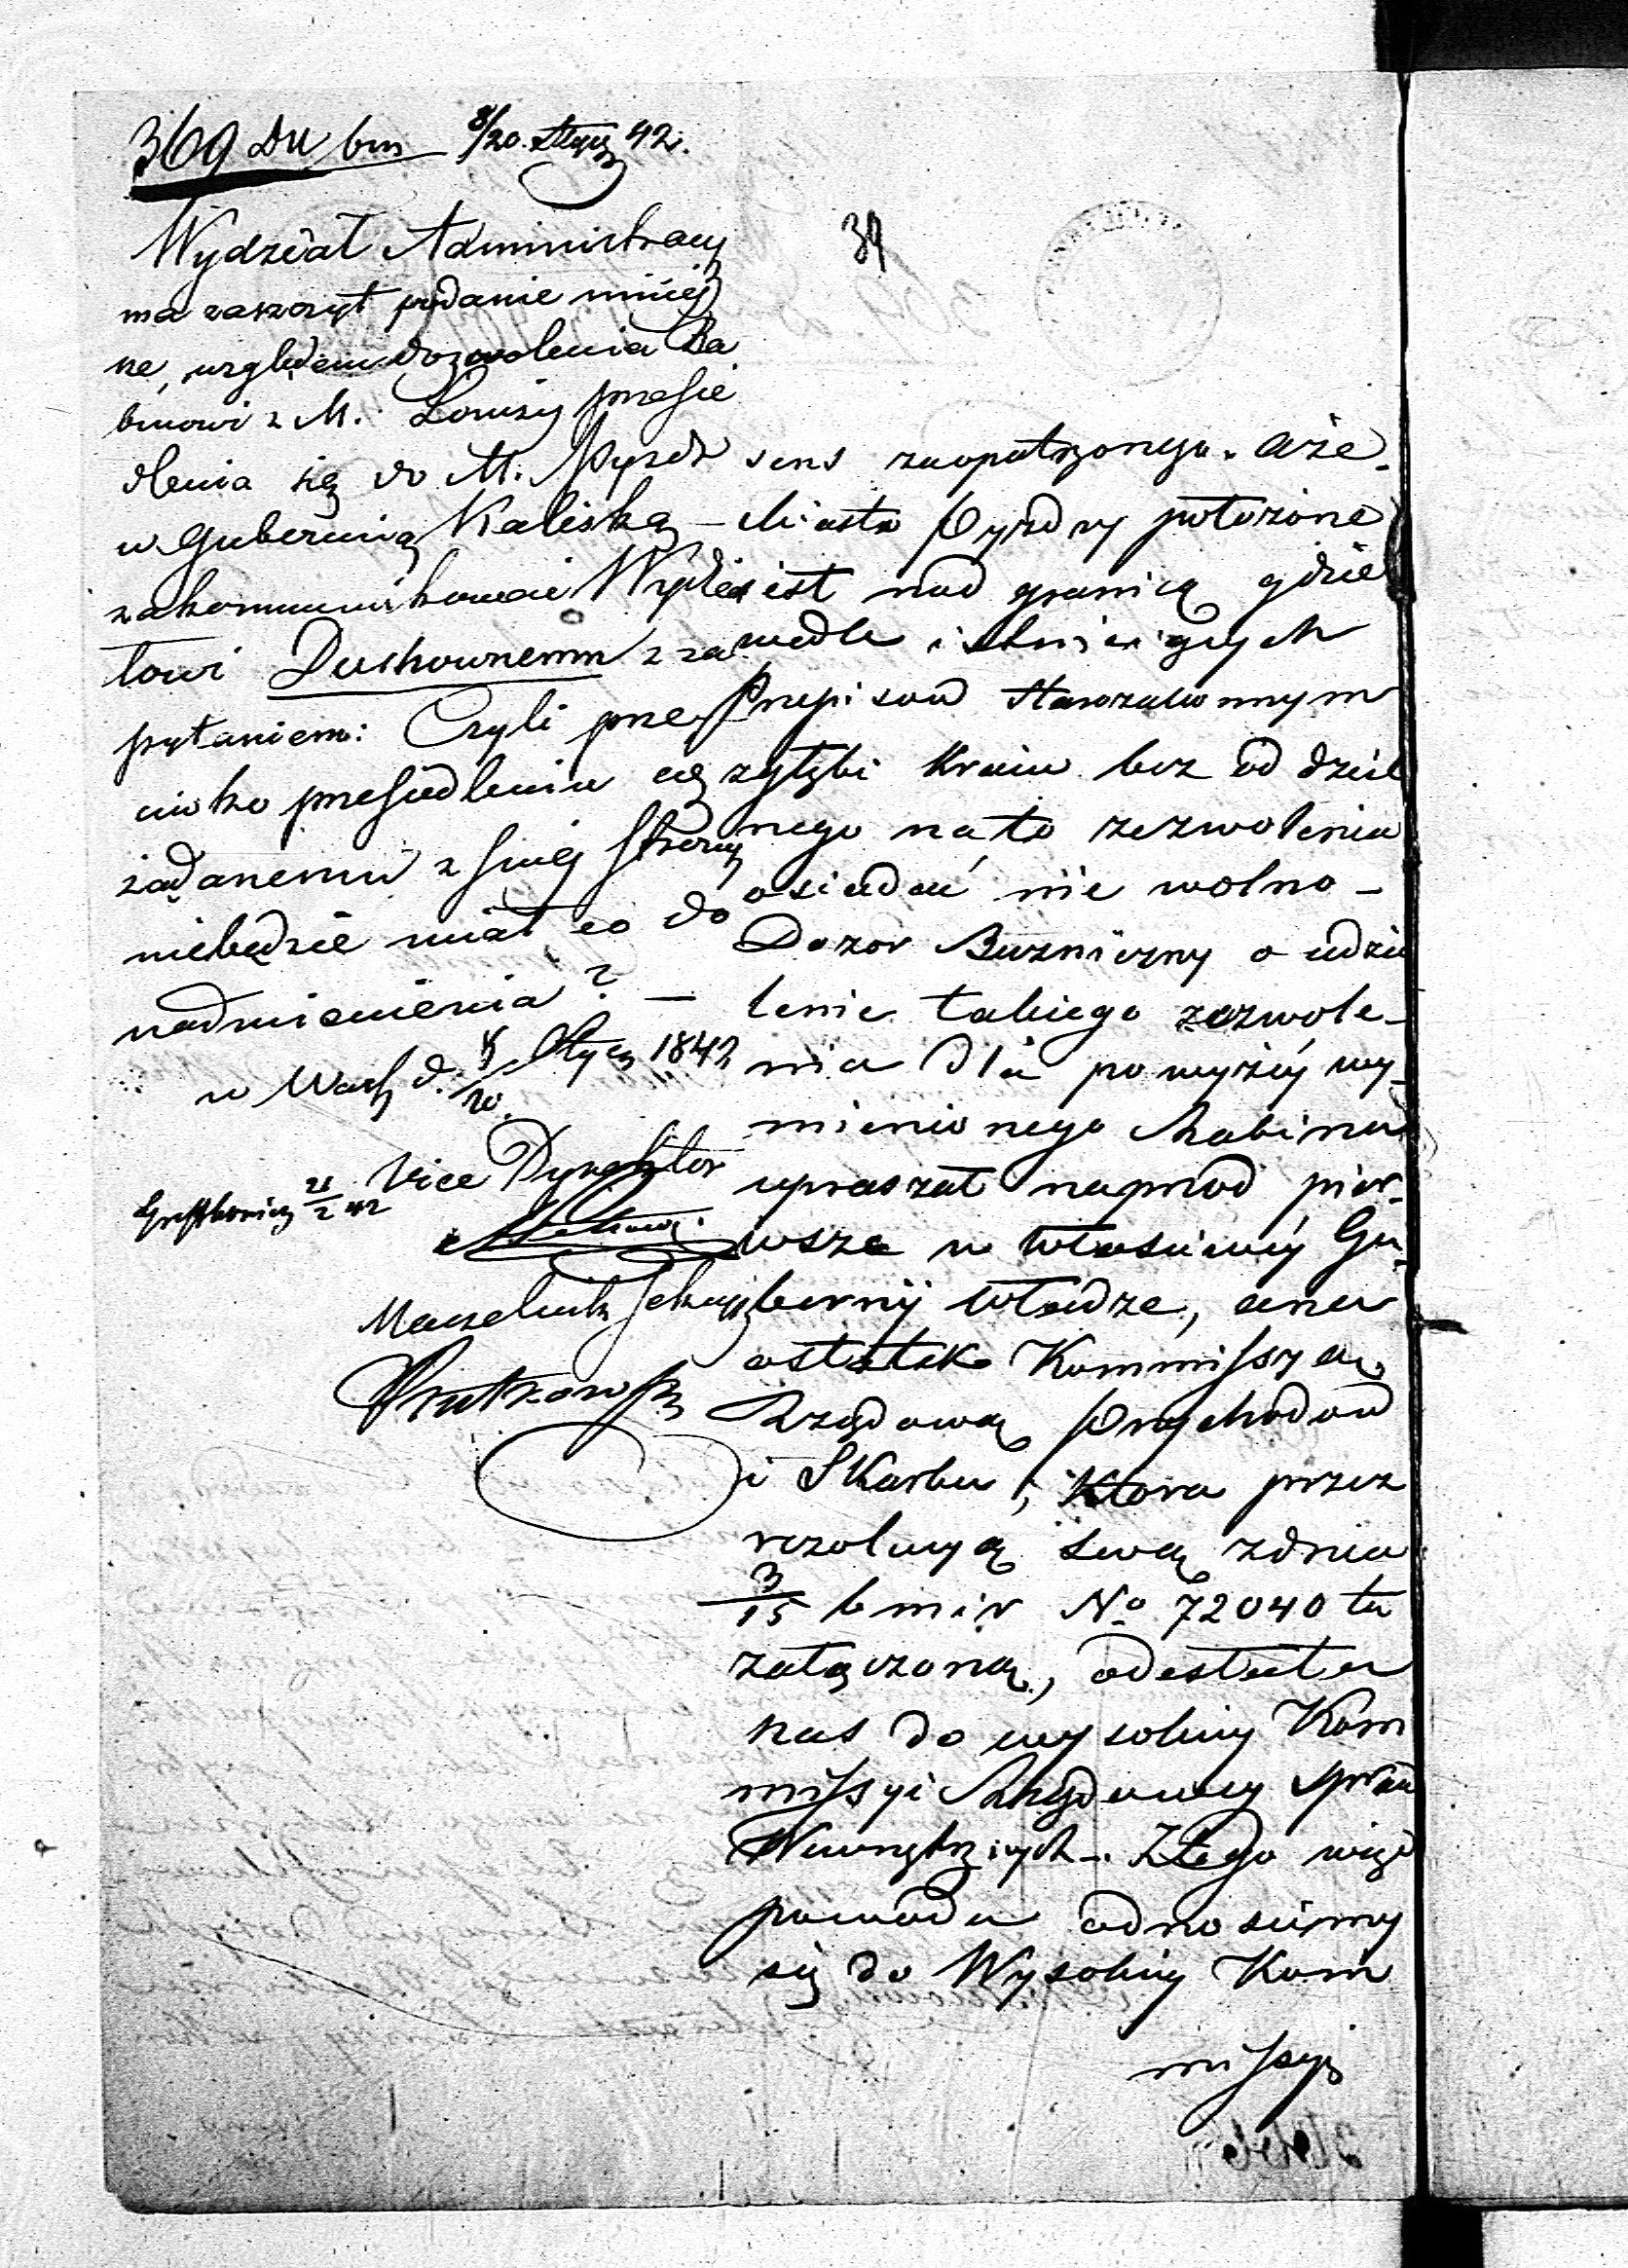 369 Du bm 8/20 Stycz 42.
39
Wydział Administracyi
ma zaszczyt podanie niniej
ne, względem dozwolenia Ra
binowi z M. Łomży przesie
dlenia się do M. Pyzdr
w Gubernią Kaliską
zakommunikować Wydzia
łowi Duchownemu z za
pytaniem: Czyli prze
ciwko przesiedleniu się
żądanemu z swej strony
niebędzie miał co do
nadmienienia? —
w Warsz d. 8/20 Stycz 1842
Vice Dyrektor
21/2 42
Naczelnik Sekcyi
Piutkowski
sens zaopatrzonego. aże-
Miasto Pyzdry położone
jest nad granicą gdzie
wedle istniejących
Przepisów Starozakonnym
zgłębi Kraju bez od dziel
nego na to zezwolenia
osiadać nie wolno –
Dozor Bużniczny o udzie
lenie takiego zezwole-
nia dla powyżej wy-
mienionego Rabina
upraszał naprzod pier-
wsze w właściwej Gu-
bernij władze, a na
ostatek Kommissyą
Rządową Przychodow
i Skarbu, Ktora przez
rezolucyą swą z dnia
3/15 b m i r No 72040 tu
załączoną, odesłała
nas do wysokiej Kom
missyi Rządowej Spraw
Wewnętrznych – Z tego więc
powodu odnosiemy
się do Wysokiej Kom
missyi